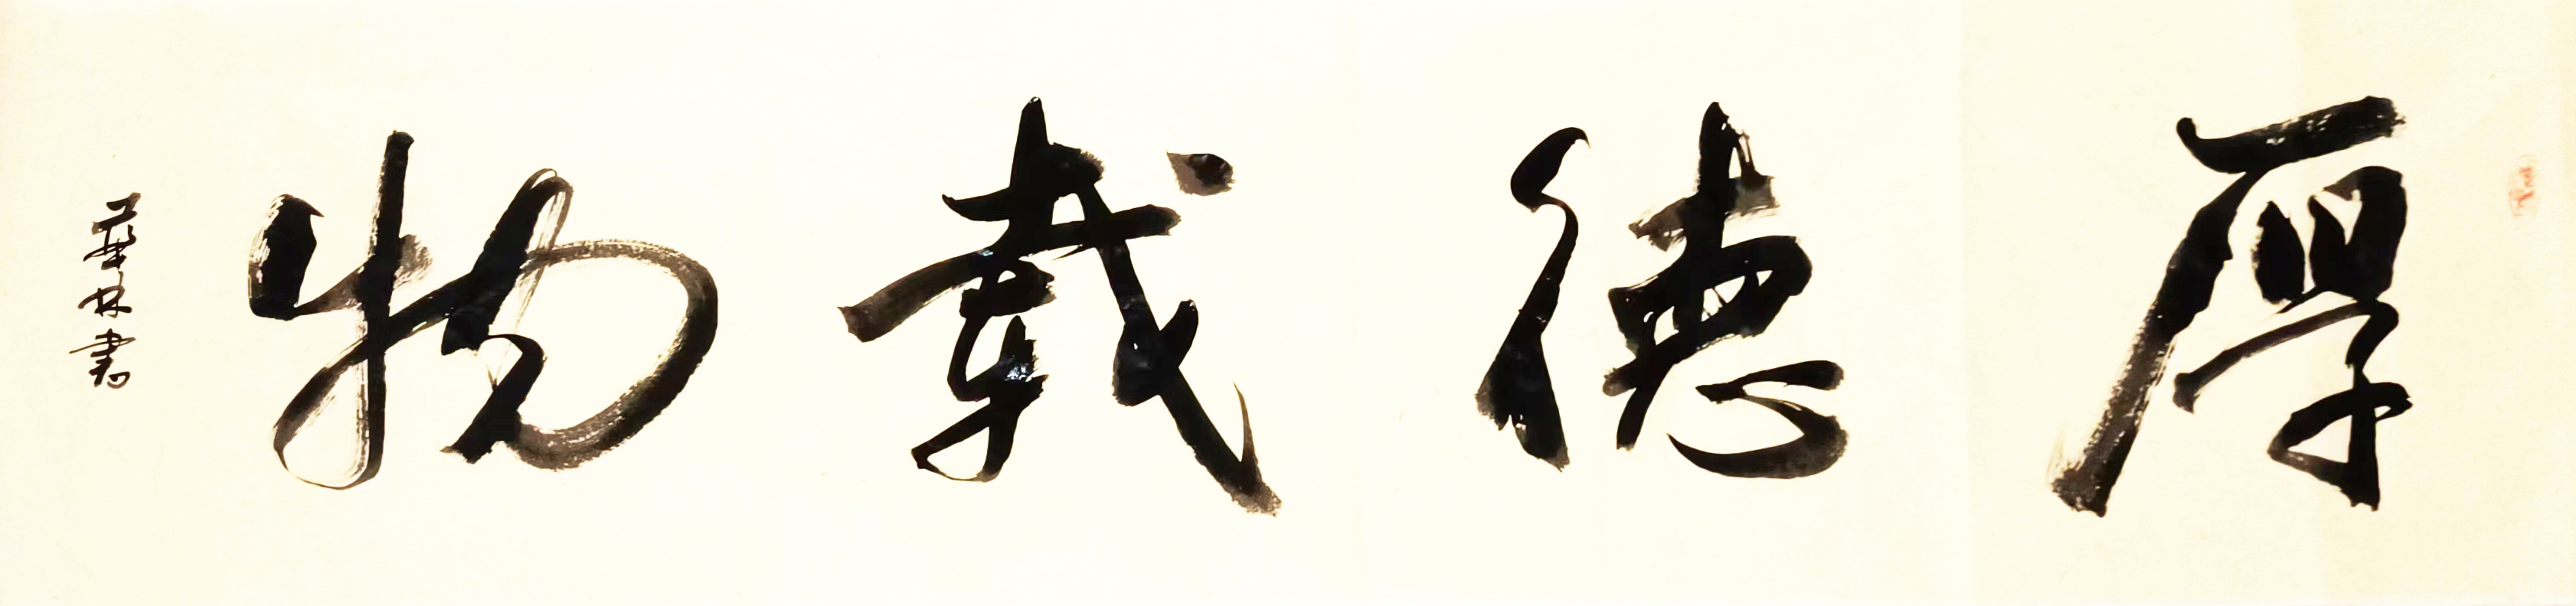 厚德载物
華林書